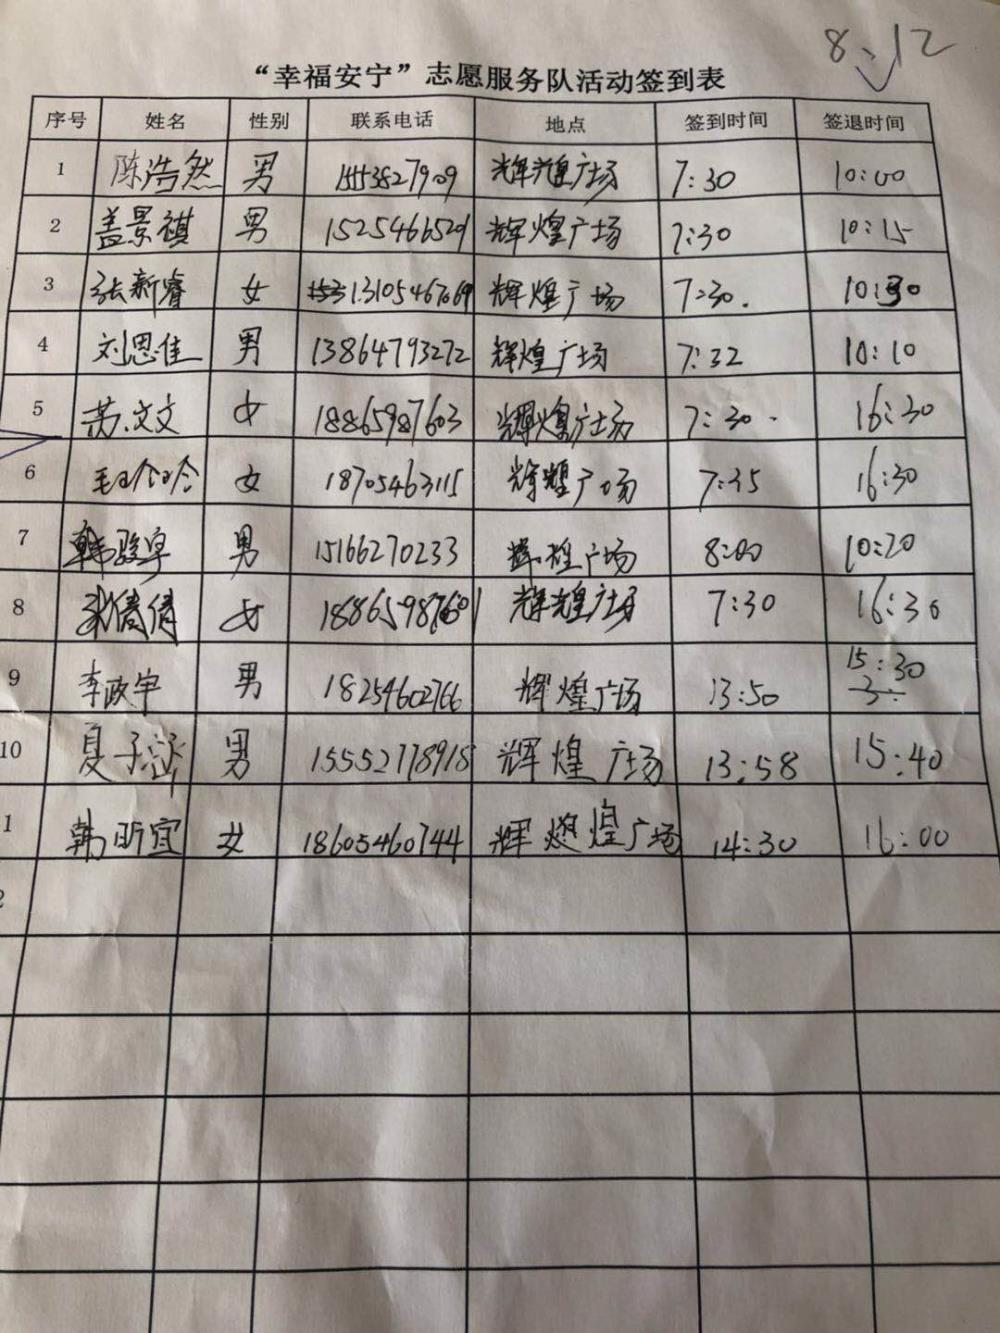 8.12
“幸福安宁”志愿服务队活动签到表
序号 姓名 性别 联系电话 地点 签到时间 签退时间
1 陈浩然 男 15553827909 辉煌广场 7:30 10:00
2 盖景祺 男 1525466529 辉煌广场 7:30 10:15
3 张新睿 女 13105467069 辉煌广场 7:30. 10:30
4 刘恩佳 男 13864793272 辉煌广场 7:32 10:10
5 文文 女 18865987603 辉煌广场 7:30 16:30
6 女 18705463115 辉煌广场 7:35 16:30
7 韩骏卓 男 15166270233 辉煌广场 8:00 10:20
8 倩倩 女 18865987601 辉煌广场 7:30 16:30
9 李政宇 男 18254602766 辉煌广场 13:50 15:30
10 夏子涵 男 15552778918 辉煌广场 13:58 15:40
1 韩昕宜 女 18605460744 辉煌广场 14:30 16:00
2